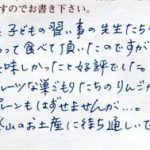 すのでお書き下さい。
子どもの習い事の先生たち
って食べて頂いたのですが
味しかったと好評でした。
ルーツな巣ごもりたちのりんごが
プーンもはずせませんが…。
山のお土産に待ち通しいで